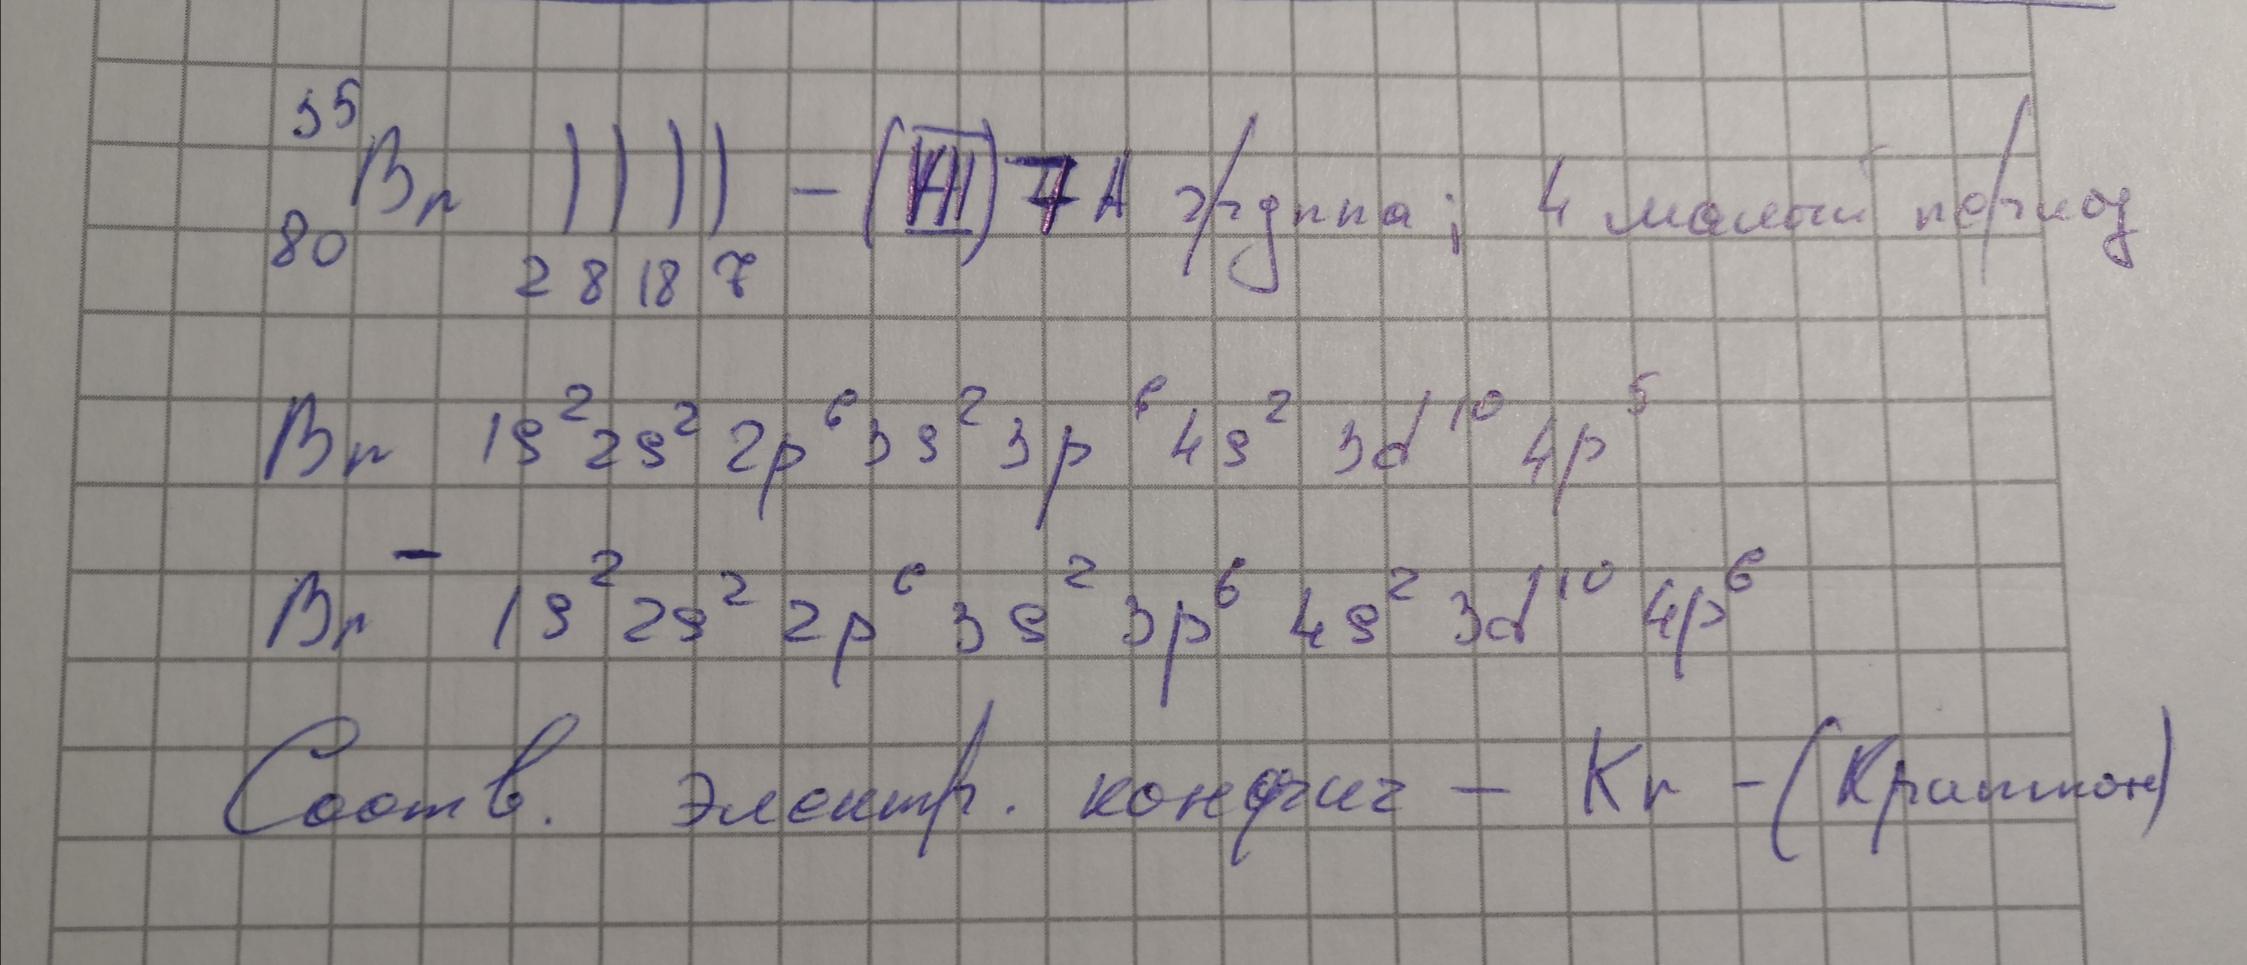 35
Br ) ) ) ) – (VII) 7А группа; 4 малый период
80 2 8 18 7
Br 1s² 2s² 2p⁶ 3s² 3p⁶ 4s² 3d¹⁰ 4p⁵
Br⁻ 1s² 2s² 2p⁶ 3s² 3p⁶ 4s² 3d¹⁰ 4p⁶
Соотв. электр. конфиг – Kr – (Криптон)